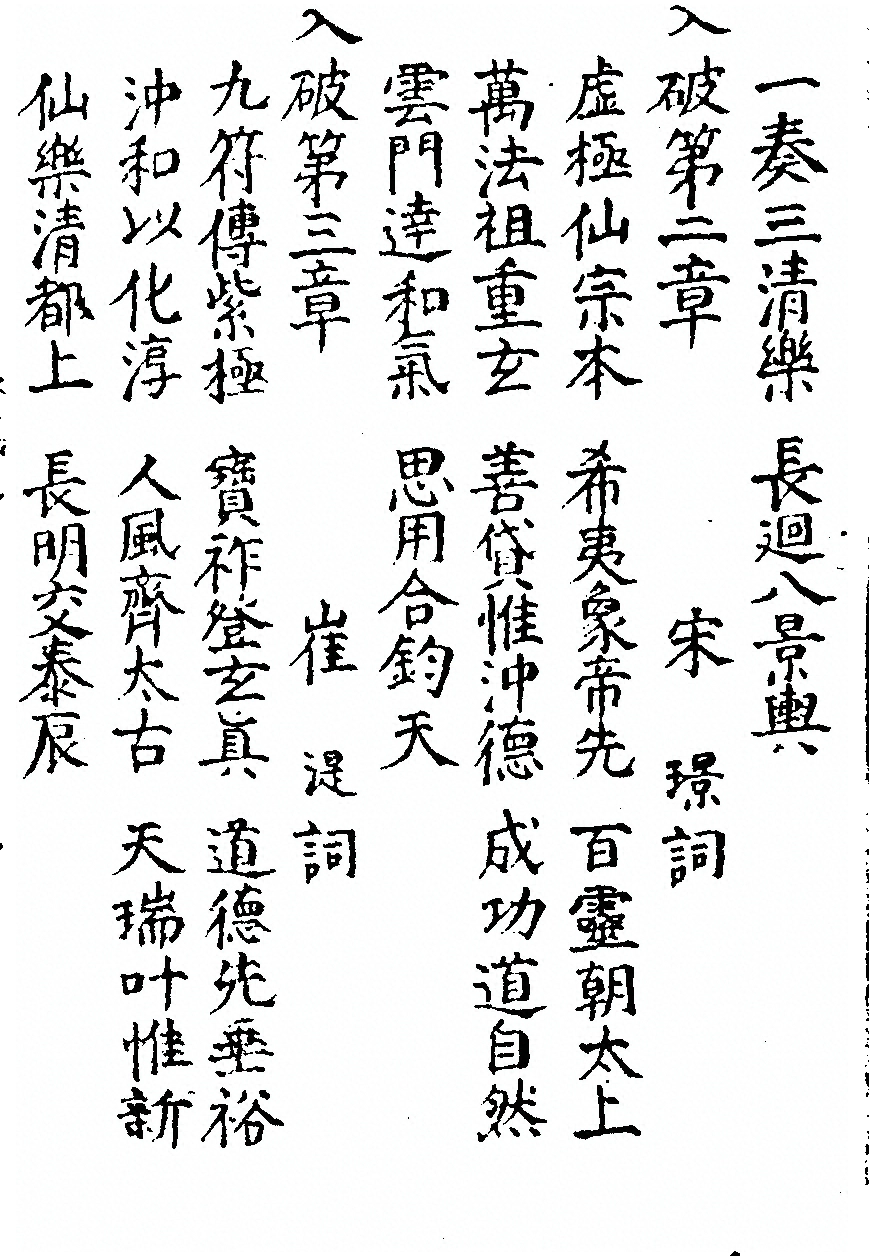 一奏三清樂　長迴八景輿
入破第二章　宋　璟詞
虛極仙宗本　希夷象帝先　百靈朝太上
萬法祖重玄　善貸惟沖德　成功道自然
雲門達和氣　思用合鈞天
入破第三章　崔　湜詞
九符傳紫極　寶祚登玄真　道德先垂裕
沖和以化淳　人風齊太古　天瑞叶惟新
仙樂清都上　長明交泰辰